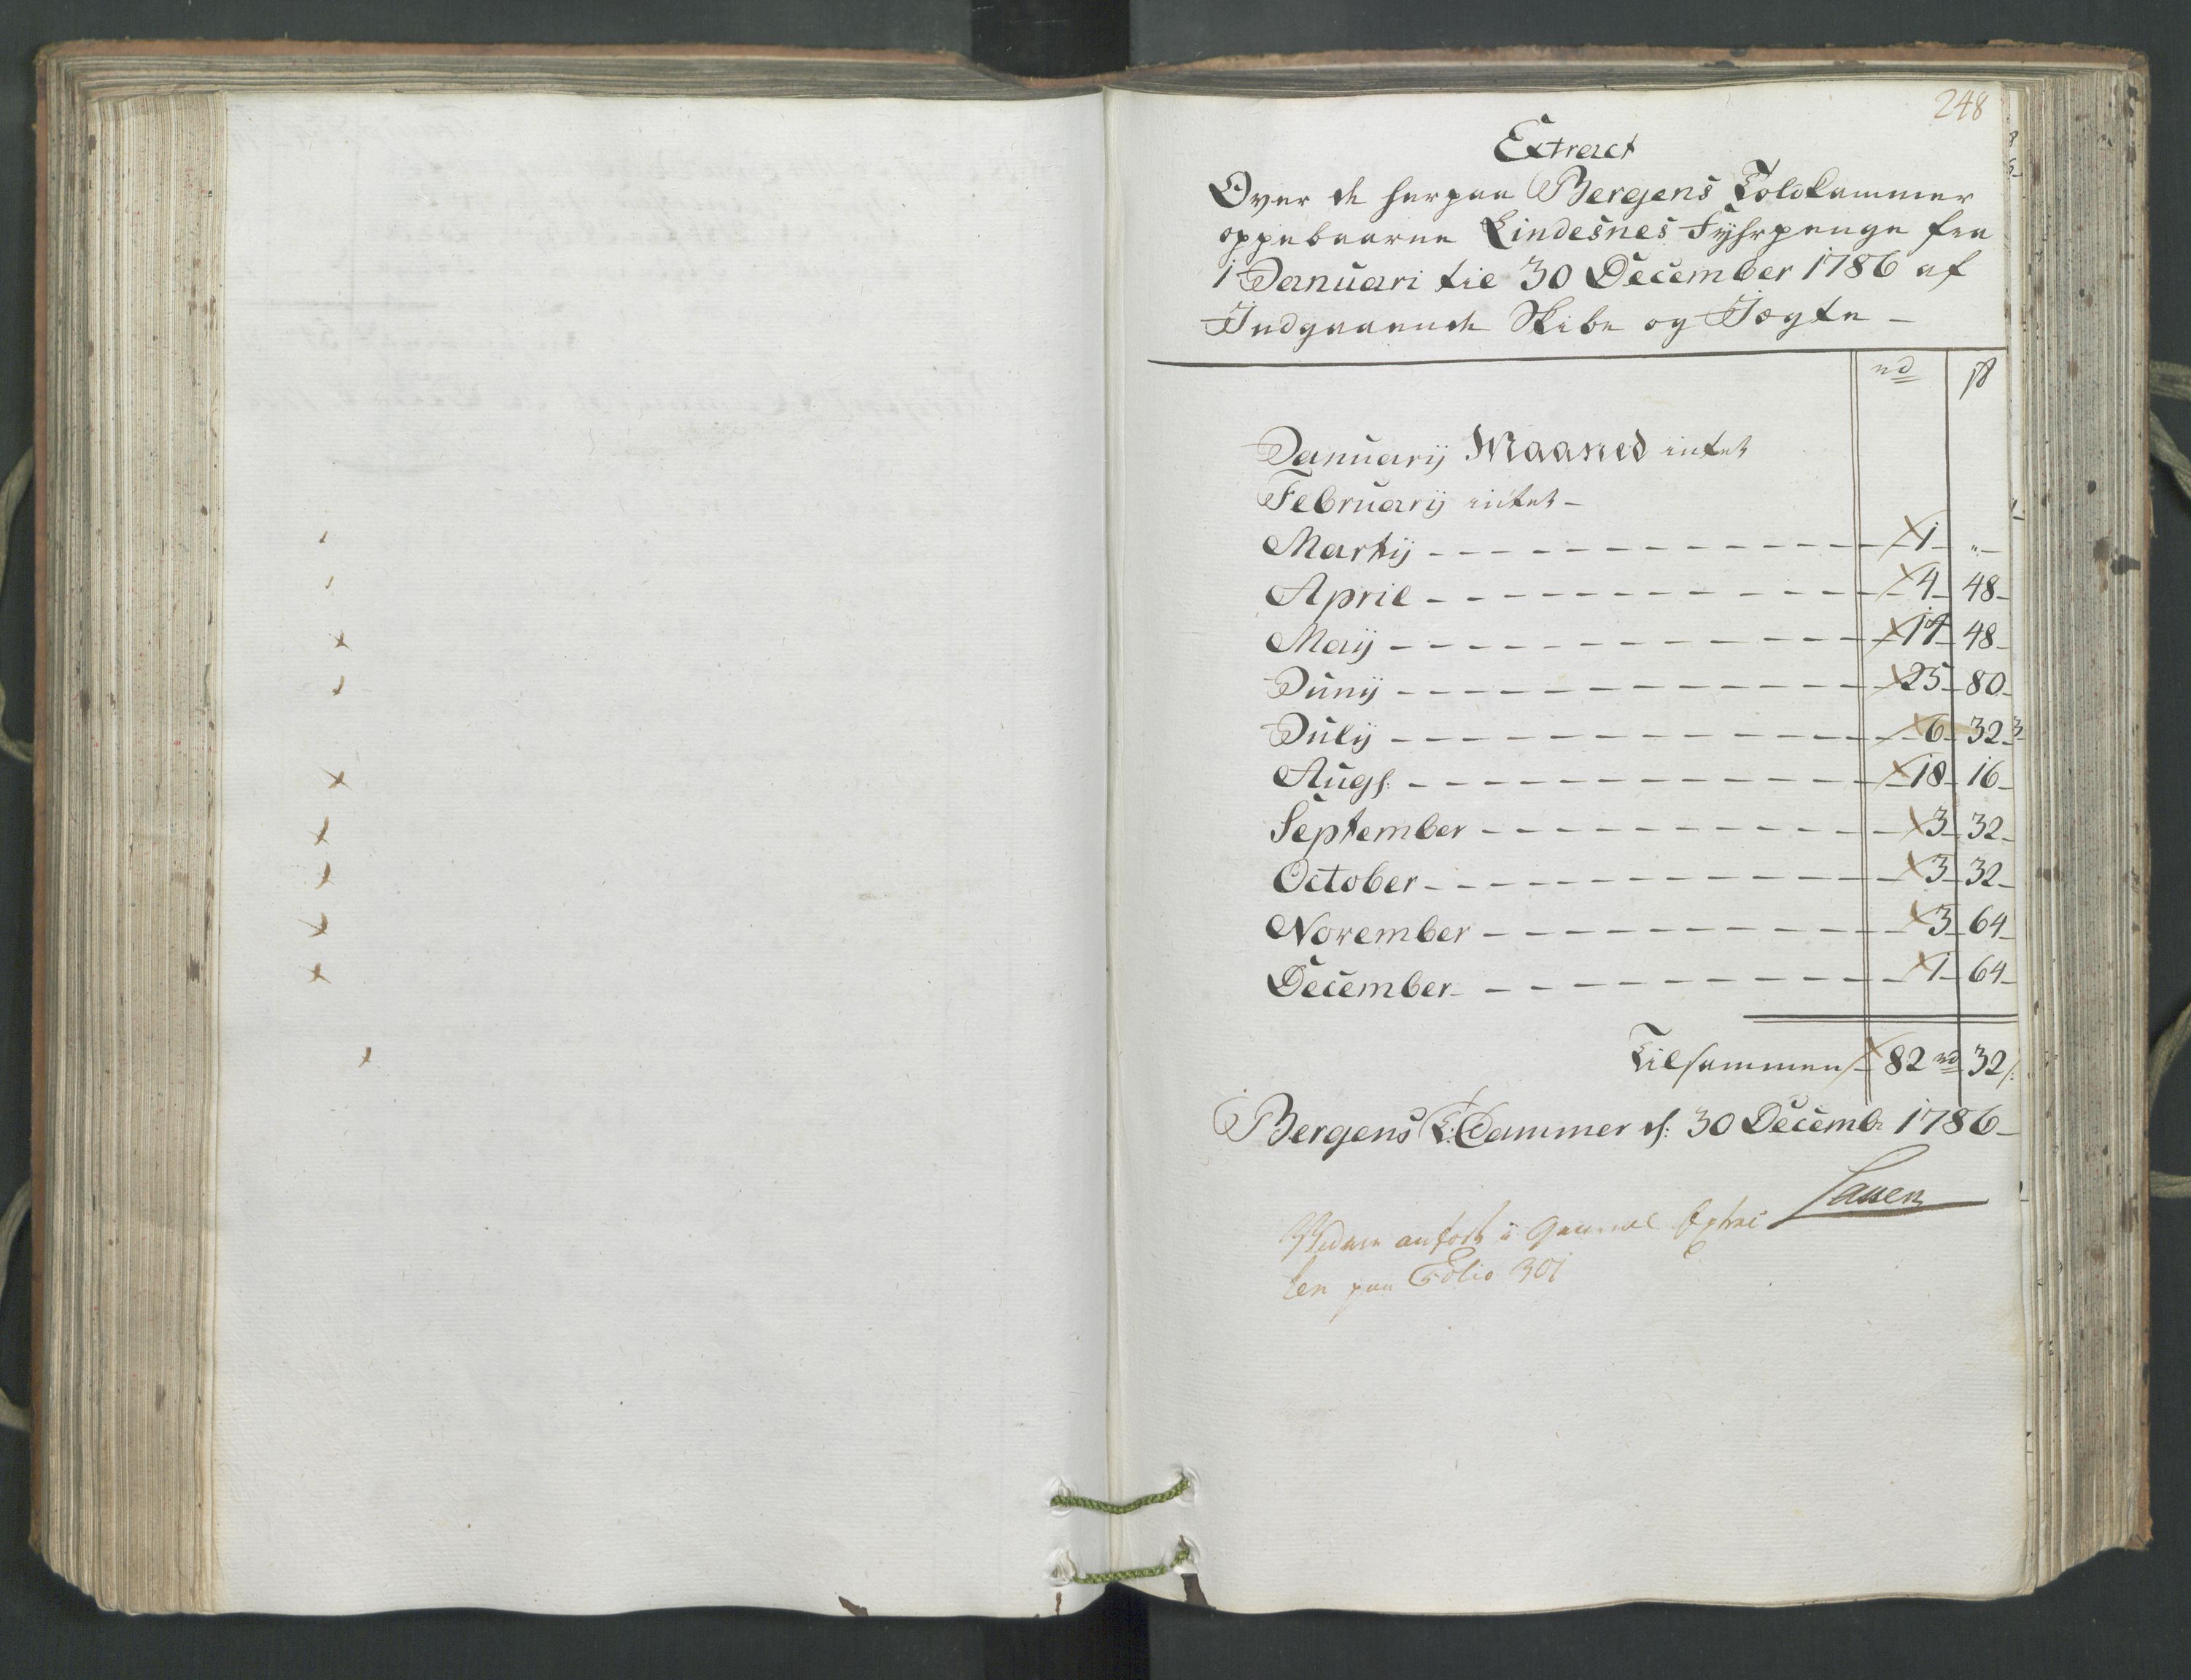 248
Extract
Over de herpaa Bergens Toldkammer
oppebaarne Lindesnes Fyhrpenge fra
1 Januari til 30 December 1786 af
Indgaaende Skibe og Jægte —
rd ß
Januarij Maaned intet
Februarij intet —
Martij — 1 — " —
April — 4 — 48 —
Maij — 14 — 48 —
Junij — 25 — 80 —
Julij — 6 — 32 —
Augs: — 18 — 16 —
September — 3 — 32 —
October — 3 — 32 —
November — 3 — 64 —
December — 1 — 64 —
Tilsammen 82 rd 32 ß
Bergens T: Cammer d: 30 Decemb: 1786 —
Videre anført i General Extrac
ten paa Folio 301